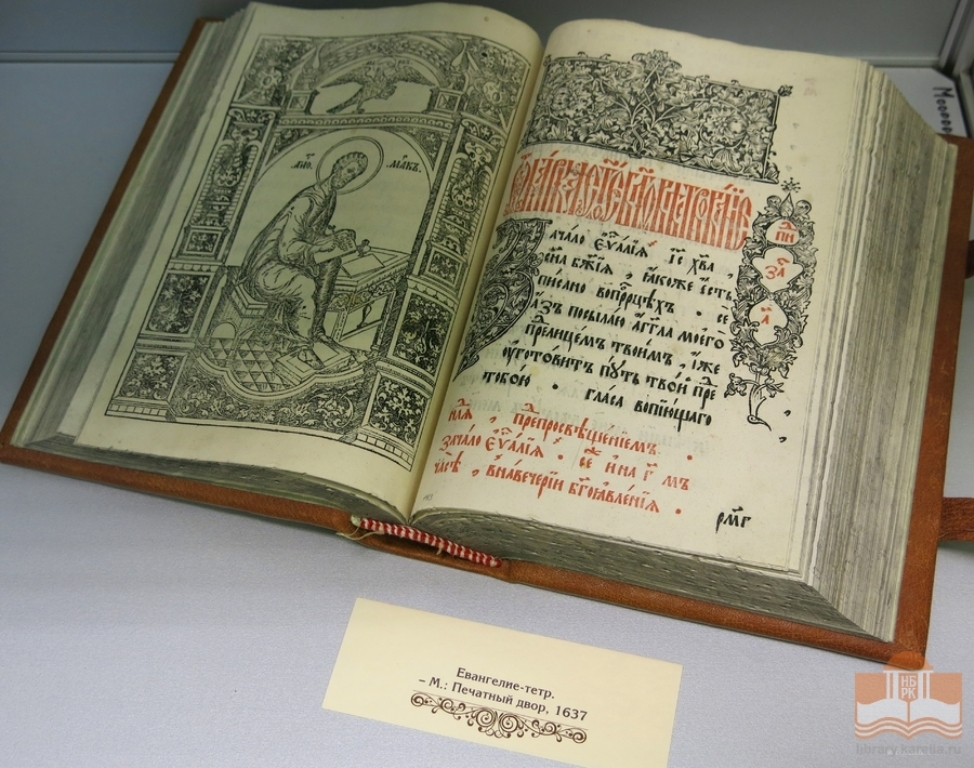 МАКЪ.
ачало еѵⷢ҇лїѧ їс҃ хв҃а
сн҃а бж҃їѧ , ꙗкоже є҆сть
писано вопрⷪ҇роцѣхъ . се
а҆зъ посылаю а҆гг҃ла моегѡ
преⷣ лицемъ твоимъ , и҆же
ᲂу҆готовитъ пꙋть твой преⷣ
тобою . гласа вопїющаго
преⷣ просвѣщенїемъ .
зачало еѵⷢ҇лїѧ .
внавечерїи бг҃оѧвленїѧ .
рмг҃
Евангелие-тетр.
– М.: Печатный двор, 1637
НБ
РК
library.karelia.ru